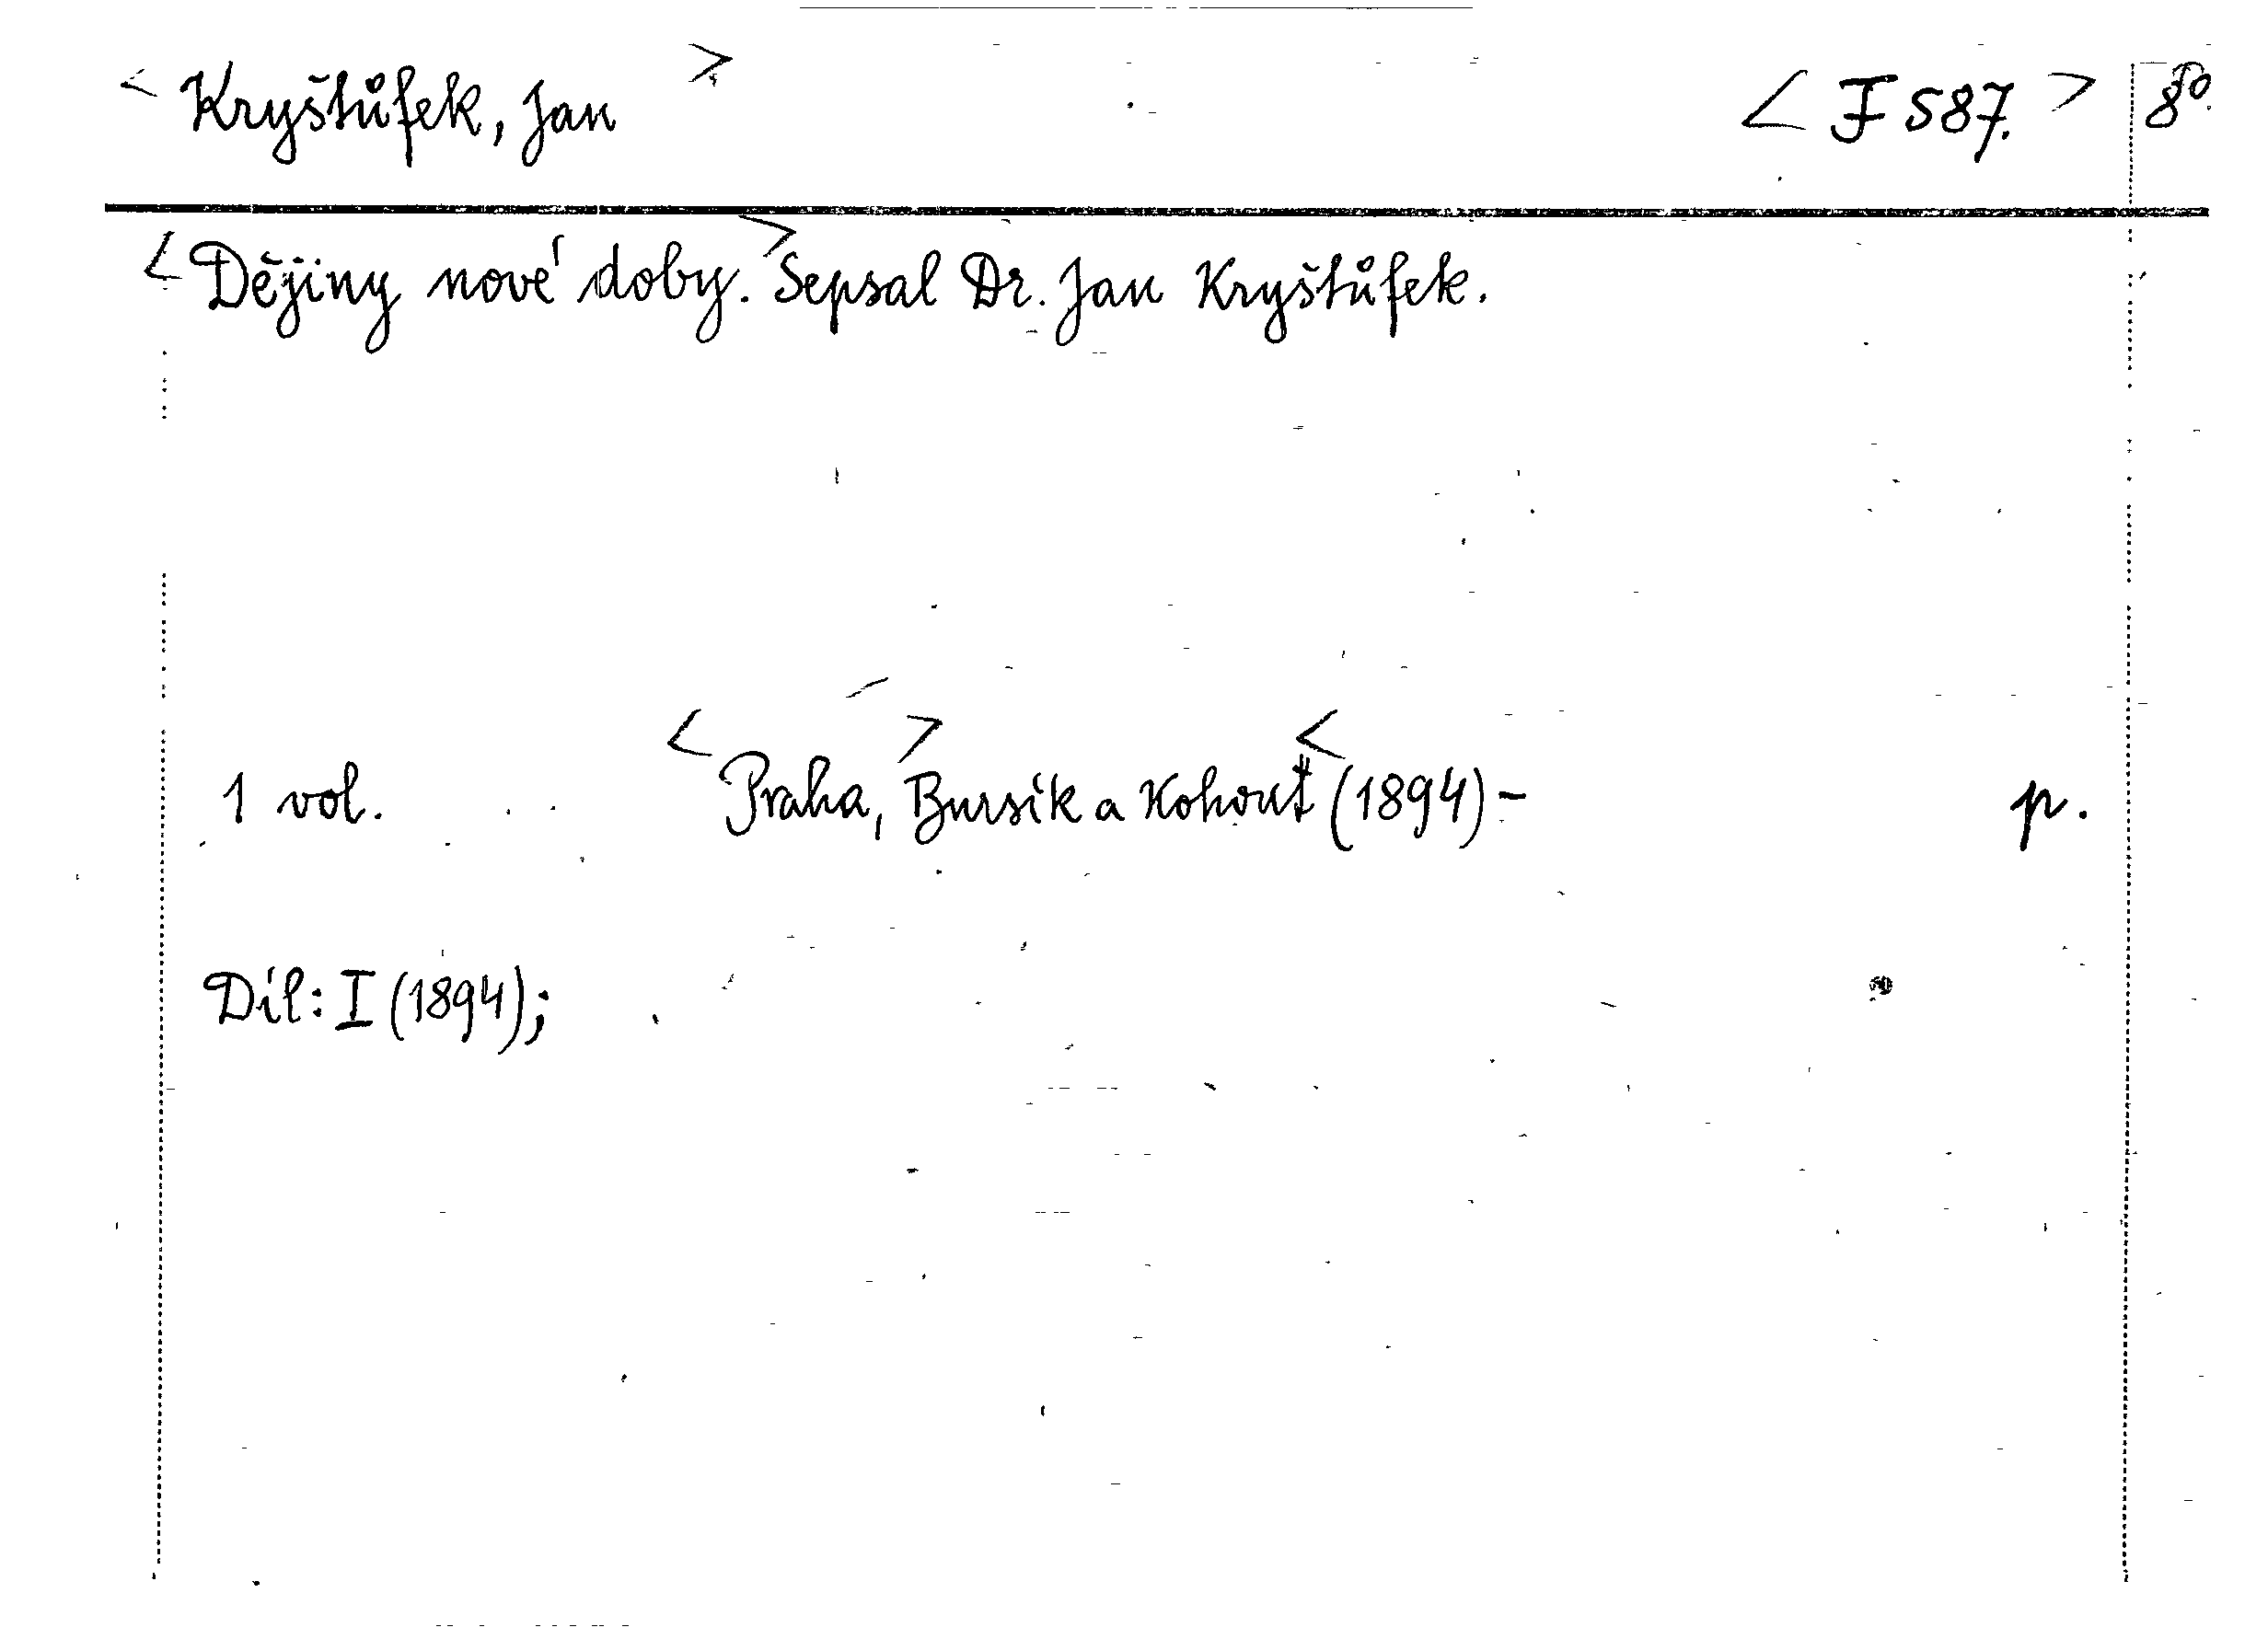 < Kryštůfek, Jan > < F 587. > 8°.
< Dějiny nové doby. > Sepsal Dr. Jan Kryštůfek.
1 vol. < Praha, > Bursík a Kohout < (1894) - p.
Díl: I (1894);